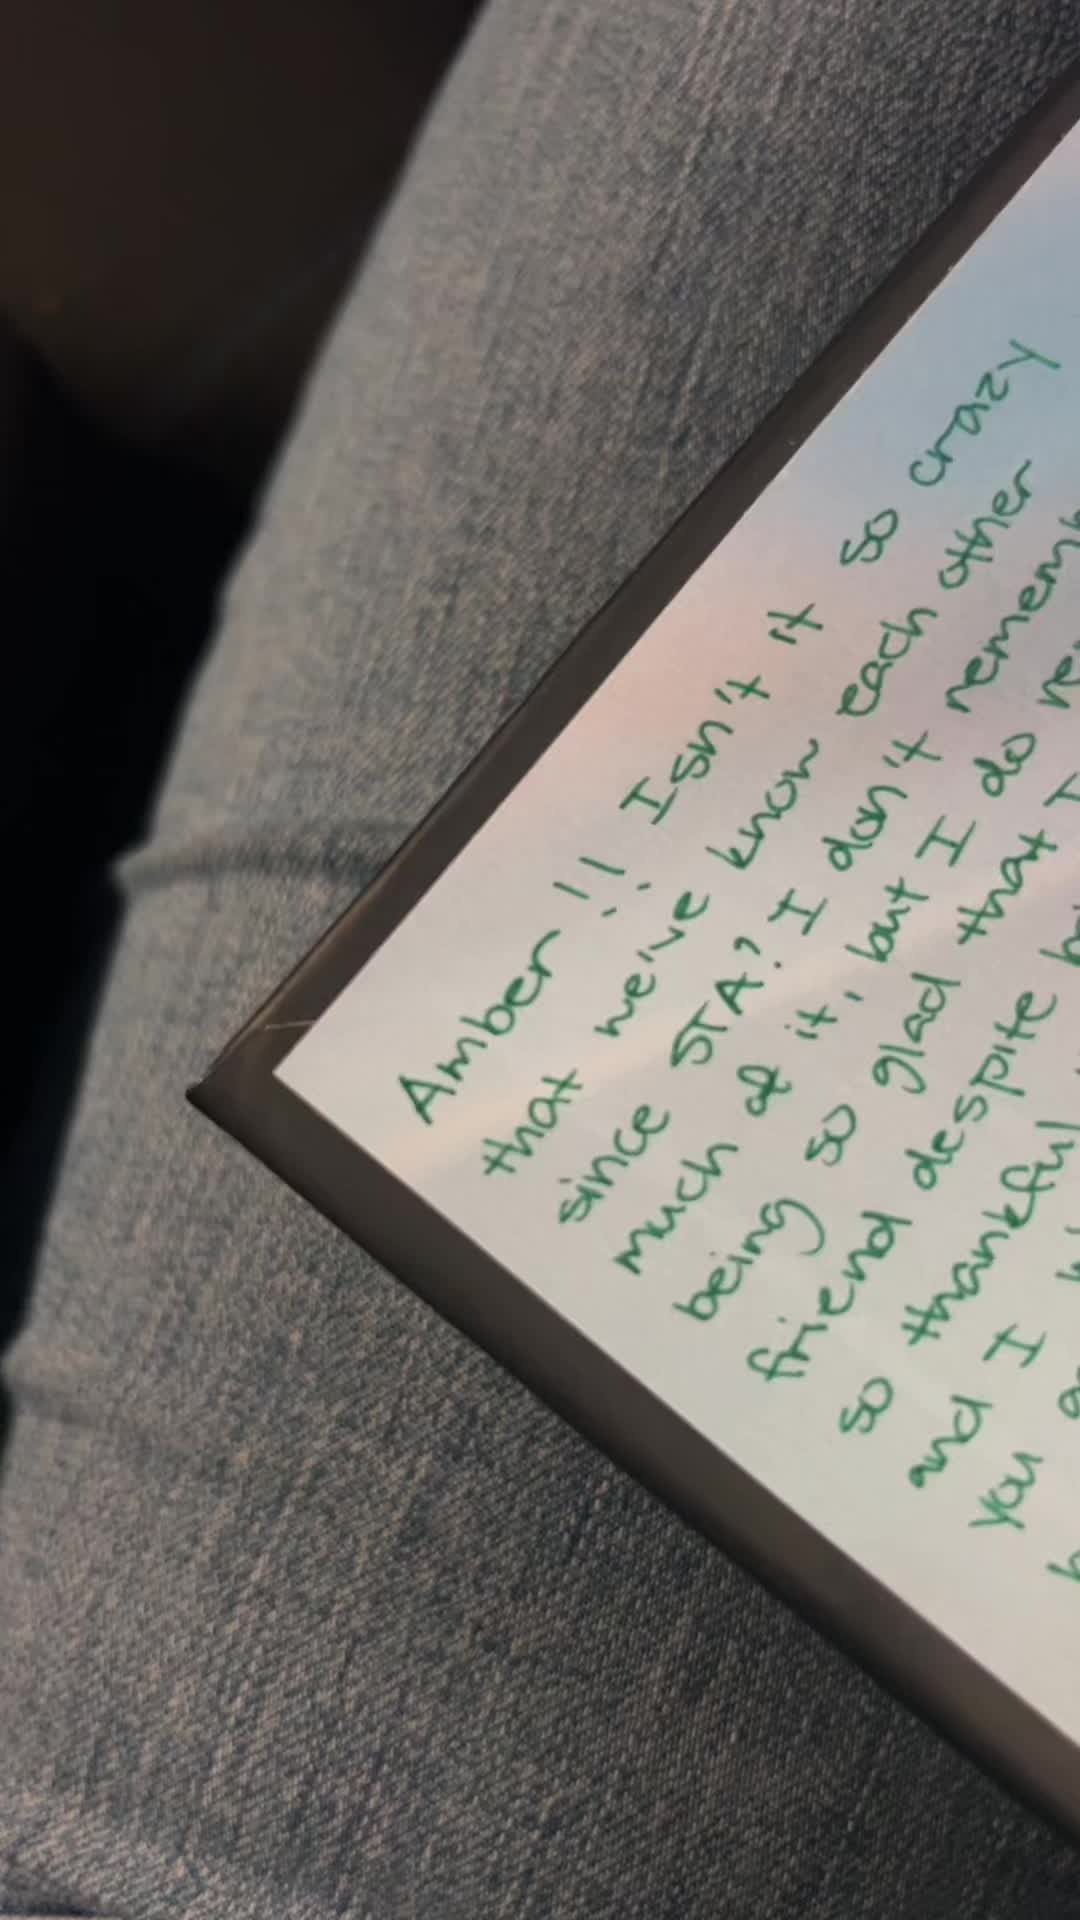 Amber!! Isn't it so crazy
that we've know each other
since STA? I don't
much of it, but I do
being so glad that I
friend despite
so thankful
and I
you